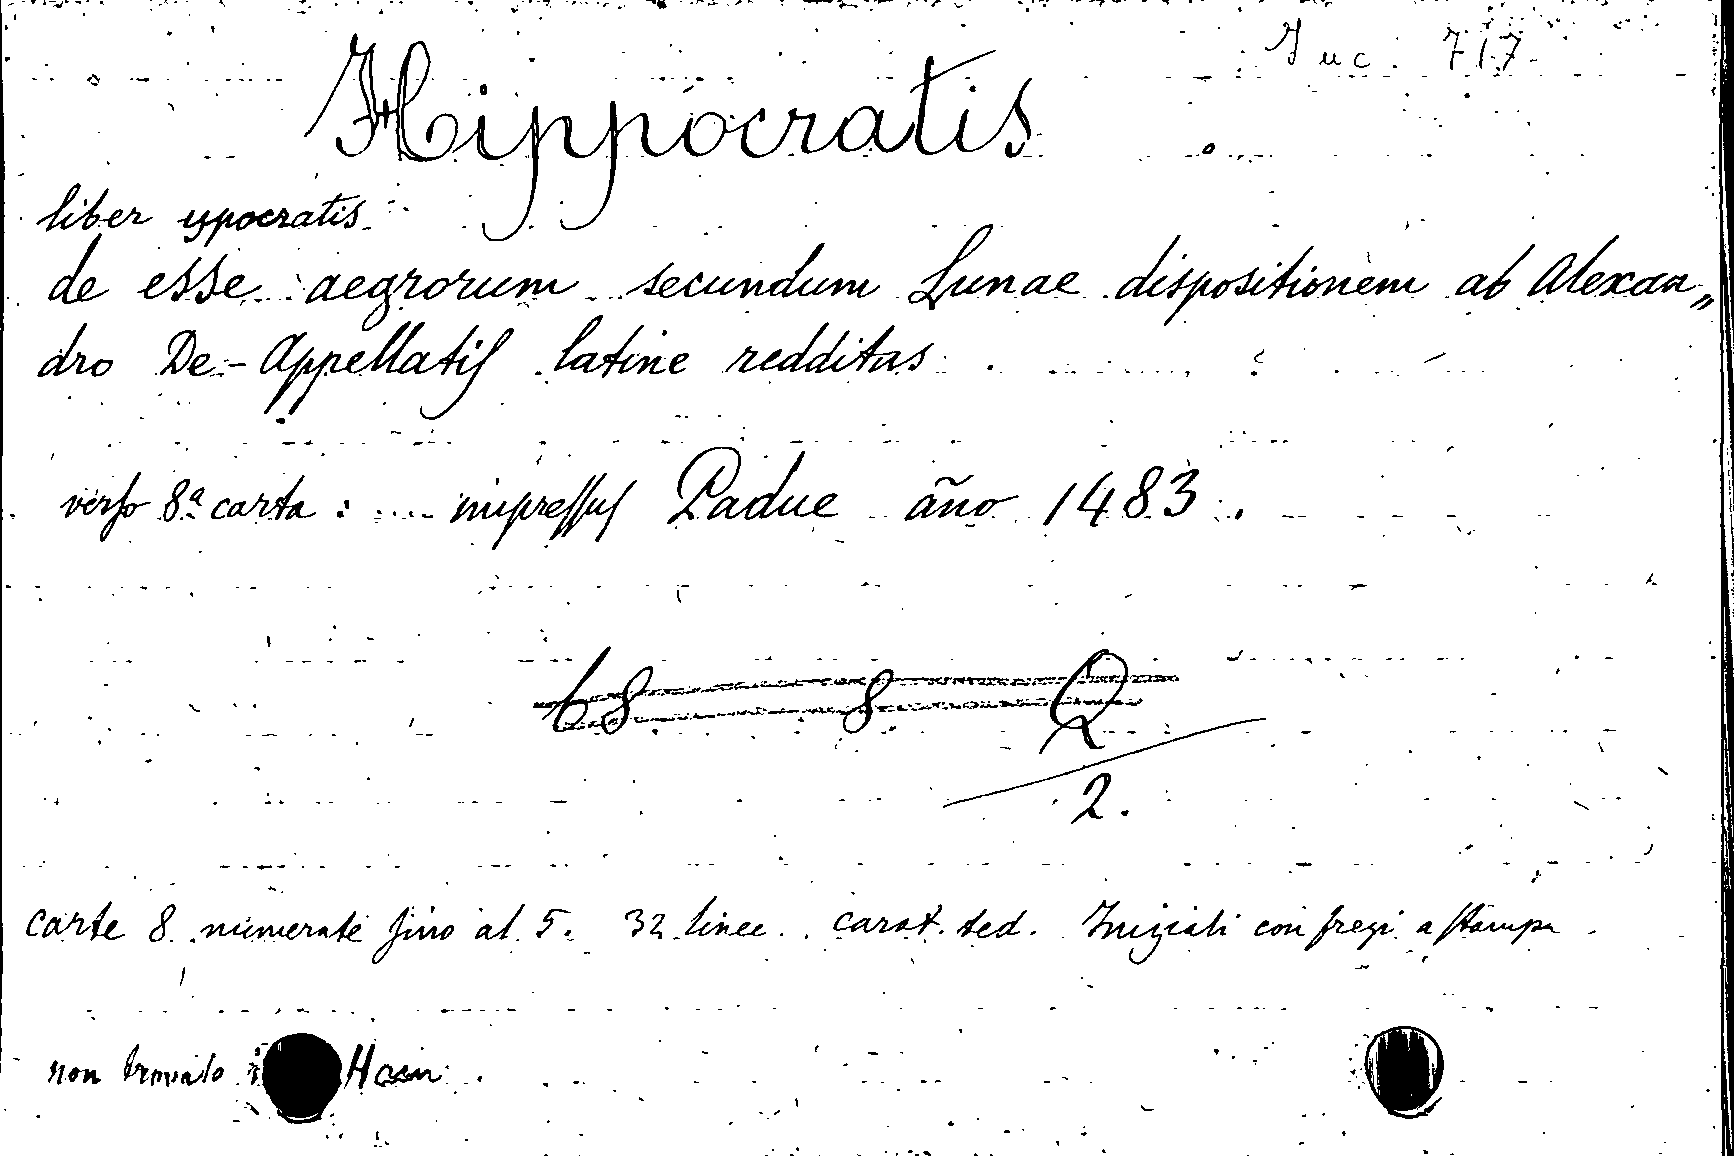 Inc. 717
Hippocratis
liber ypocratis
de esse aegrorum secundum Lunae dispositionem ab Alexan„
dro De-Appellatis latine redditas
verso 8ª carta : .... impressus Padue año 1483.
68 8 Q
2.
carte 8 numerate fino al 5. 32 linee. carat. ted. Iniziali con fregi a stampa
non trovato Hain